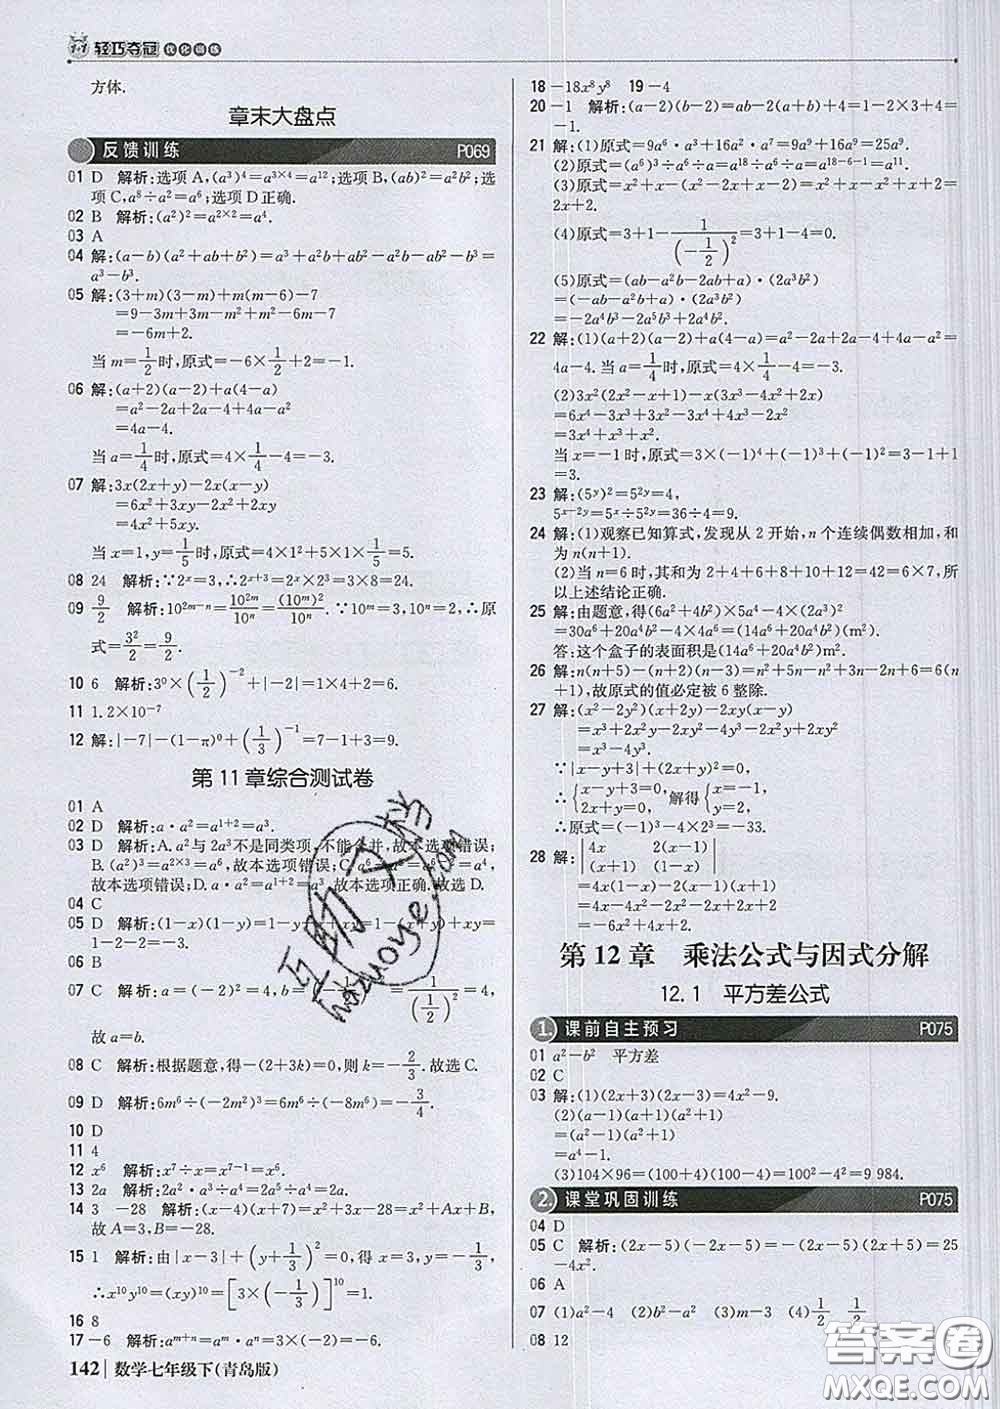 1+1 轻巧夺冠 优化训练
方体.
章末大盘点
反馈训练 P069
01 D 解析:选项A,(a³)⁴=a³ˣ⁴=a¹²;选项B,(ab)²=a²b²;选
项C,a⁸÷a²=a⁶;选项D正确.
02 B 解析:(a²)²=a²ˣ²=a⁴.
03 A
04 解:(a-b)(a²+ab+b²)=a³+a²b+ab²-a²b-ab²-b³=
a³-b³.
05 解:(3+m)(3-m)+m(m-6)-7
=9-3m+3m-m²+m²-6m-7
=-6m+2.
当m=1/2时,原式=-6×1/2+2=-1.
06 解:(a+2)(a-2)+a(4-a)
=a²-2a+2a-4+4a-a²
=4a-4.
当a=1/4时,原式=4×1/4-4=-3.
07 解:3x(2x+y)-2x(x-y)
=6x²+3xy-2x²+2xy
=4x²+5xy.
当x=1,y=1/5时,原式=4×1²+5×1×1/5=5.
08 24 解析:∵2ˣ=3,∴2ˣ⁺³=2ˣ×2³=3×8=24.
09 9/2 解析:10²ᵐ⁻ⁿ=10²ᵐ/10ⁿ=(10ᵐ)²/10ⁿ.∵10ᵐ=3,10ⁿ=2,∴原
式=3²/2=9/2.
10 6 解析:3⁰×(1/2)⁻²+|-2|=1×4+2=6.
11 1.2×10⁻⁷
12 解:|-7|-(1-π)⁰+(1/3)⁻¹=7-1+3=9.
第11章综合测试卷
01 A
02 D 解析:a·a²=a¹⁺²=a³.
03 D 解析:A.a²与2a³不是同类项,不能合并,故本选项错误;
B.(a²)³=a²ˣ³=a⁶,故本选项错误;C.a⁶÷a²=a⁶⁻²=a⁴,
故本选项错误;D.a·a²=a¹⁺²=a³,故本选项正确.故选D.
04 C
05 D 解析:(1-x)(1-y)=1-y-x+xy=1-(x+y)+xy=
1-2-2=-3.
06 B
07 C 解析:a=(-2)²=4,b=1/(1/2)²=4,
故a=b.
08 C 解析:根据题意,得-(2+3k)=0,即k=-2/3.故选C.
09 D 解析:6m⁶÷(-2m²)³=6m⁶÷(-8m⁶)=-3/4.
10 D
11 4
12 x⁶ 解析:x⁷÷x=x⁷⁻¹=x⁶.
13 2a 解析:2a²·a³÷a⁴=2a⁵÷a⁴=2a.
14 3 -28 解析:(x-4)(x+7)=x²+3x-28=x²+Ax+B,
故A=3,B=-28.
15 1 解析:由|x-3|+(y+1/3)²=0,得x=3,y=-1/3,
∴x¹⁰y¹⁰=(xy)¹⁰=[3×(-1/3)]¹⁰=1.
16 8
17 -6 解析:aᵐ⁺ⁿ=aᵐ·aⁿ=3×(-2)=-6.
142 数学七年级下(青岛版)
18 -18x⁸y⁸ 19 -4
20 -1 解析:(a-2)(b-2)=ab-2(a+b)+4=1-2×3+4=
-1.
21 解:(1)原式=9a⁶·a³+16a²·a⁷=9a⁹+16a⁹=25a⁹.
(2)原式=(a⁶)³÷a⁶÷a=a¹⁸÷a⁶÷a=a¹⁸⁻⁶⁻¹=a¹¹.
(3)原式=x²+x-(x²-2x+x-2)=x²+x-x²+x+2=
2x+2.
(4)原式=3+1-1/(-1/2)²=3+1-4=0.
(5)原式=(ab-a²b-2ab+a)·(2a³b²)
=(-ab-a²b+a)·(2a³b²)
=-2a⁴b³-2a⁵b³+2a⁴b².
22 解:(1)(a+2)(a-2)+a(4-a)=a²-2a+2a-4+4a-a²=
4a-4.当a=1/4时,原式=4×1/4-4=-3.
(2)3x²(2x²-x+1)-x(3x³-4x²+2x)
=6x⁴-3x³+3x²-3x⁴+4x³-2x²
=3x⁴+x³+x².
当x=-1时,原式=3×(-1)⁴+(-1)³+(-1)²=3-1+1
=3.
23 解:(5ʸ)²=5²ʸ=4,
5ˣ⁻²ʸ=5ˣ÷5²ʸ=36÷4=9.
24 解:(1)观察已知算式,发现从2开始,n个连续偶数相加,和
为n(n+1).
(2)当n=6时,其和为2+4+6+8+10+12=42=6×7,所
以上述结论正确.
25 解:由题意,得(6a²+4b²)×5a⁴-4×(2a³)²
=30a⁶+20a⁴b²-4×4a⁶=(14a⁶+20a⁴b²)(m²).
答:这个盒子的表面积是(14a⁶+20a⁴b²)m².
26 解:n(n+5)-(n+2)(n-3)=n²+5n-n²+3n-2n+6=6(n
+1),故原式的值必定被6整除.
27 解:(x²-2y²)(x+2y)-2xy(x-y)
=x³+2x²y-2xy²-4y³-2x²y+2xy²
=x³-4y³.
∵|x-y+3|+(2x+y)²=0,
∴{x-y+3=0, 2x+y=0, 解得{x=-1, y=2.
∴原式=(-1)³-4×2³=-33.
28 解:|4x 2(x-1)|
|(x+1) (1-x)|
=4x(1-x)-2(x-1)(x+1)
=4x-4x²-2x²+2
=-6x²+4x+2.
第12章 乘法公式与因式分解
12.1 平方差公式
1. 课前自主预习 P075
01 a²-b² 平方差
02 C
03 解:(1)(2x+3)(2x-3)=4x²-9.
(2)(a-1)(a+1)(a²+1)
=(a²-1)(a²+1)
=a⁴-1.
(3)104×96=(100+4)(100-4)=100²-4²=9 984.
2. 课堂巩固训练 P075
04 D
05 C 解析:(2x-5)(-2x-5)=-(2x-5)(2x+5)=25
-4x².
06 A
07 (1)a²-4 (2)b²-a² (3)m-3 (4)1/2 1/2
08 12
答案圈
MXQE.COM